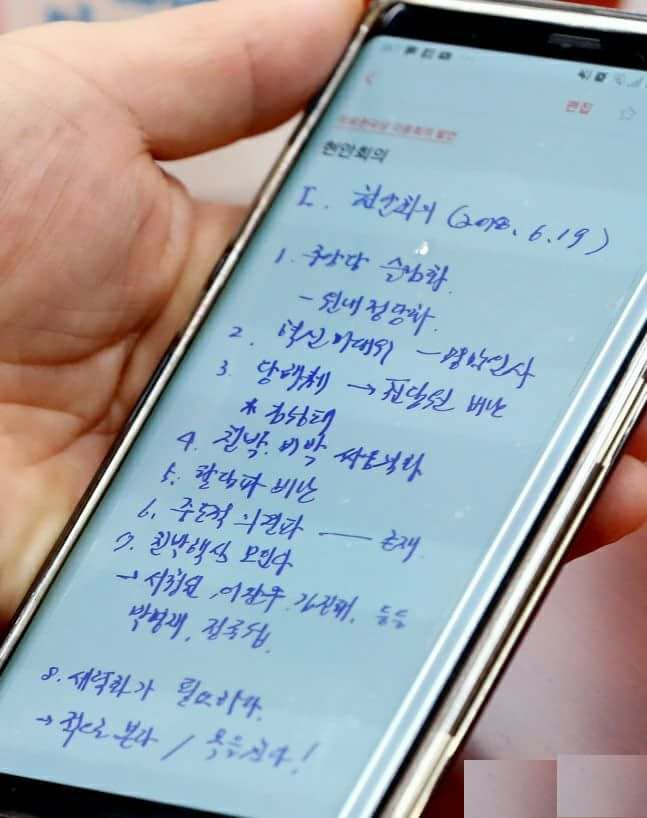 편집
현안회의
I. 현안회의 (2018. 6. 19)
1. 중앙당 슬림화
- 원내정당화.
2. 혁신비대위 -
3. → 전당원 비난
4. 친박·비박 싸움격화
5. 탈당파 비난
6. 중도적 의견과 —
7. 친박핵심 모인다
→ 서청원, 이장우, 김진태, 등등
박명재, 정종섭.
8. 세력화가 필요하다.
→ 적으로 본다 / 목을 친다!